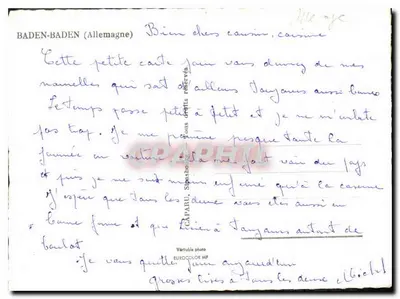 BADEN-BADEN (Allemagne)
Bien chers cousin, cousine
Cette petite carte pour vous donner de nos
nouvelles qui sont d'ailleurs toujours aussi bonnes
Le temps passe petit à petit et je ne m'
pas trop. Je me promène presque toute la
journée en voiture fait voir du pays
et puis je ne suis moins enfermé qu'à la caserne
J'espère que tous les deux vous êtes aussi en
bonne forme et que a toujours autant de
boulot
Je vous quitte pour aujourd'hui
grosses bises à tous les deux, Michel
CAP
Véritable photo